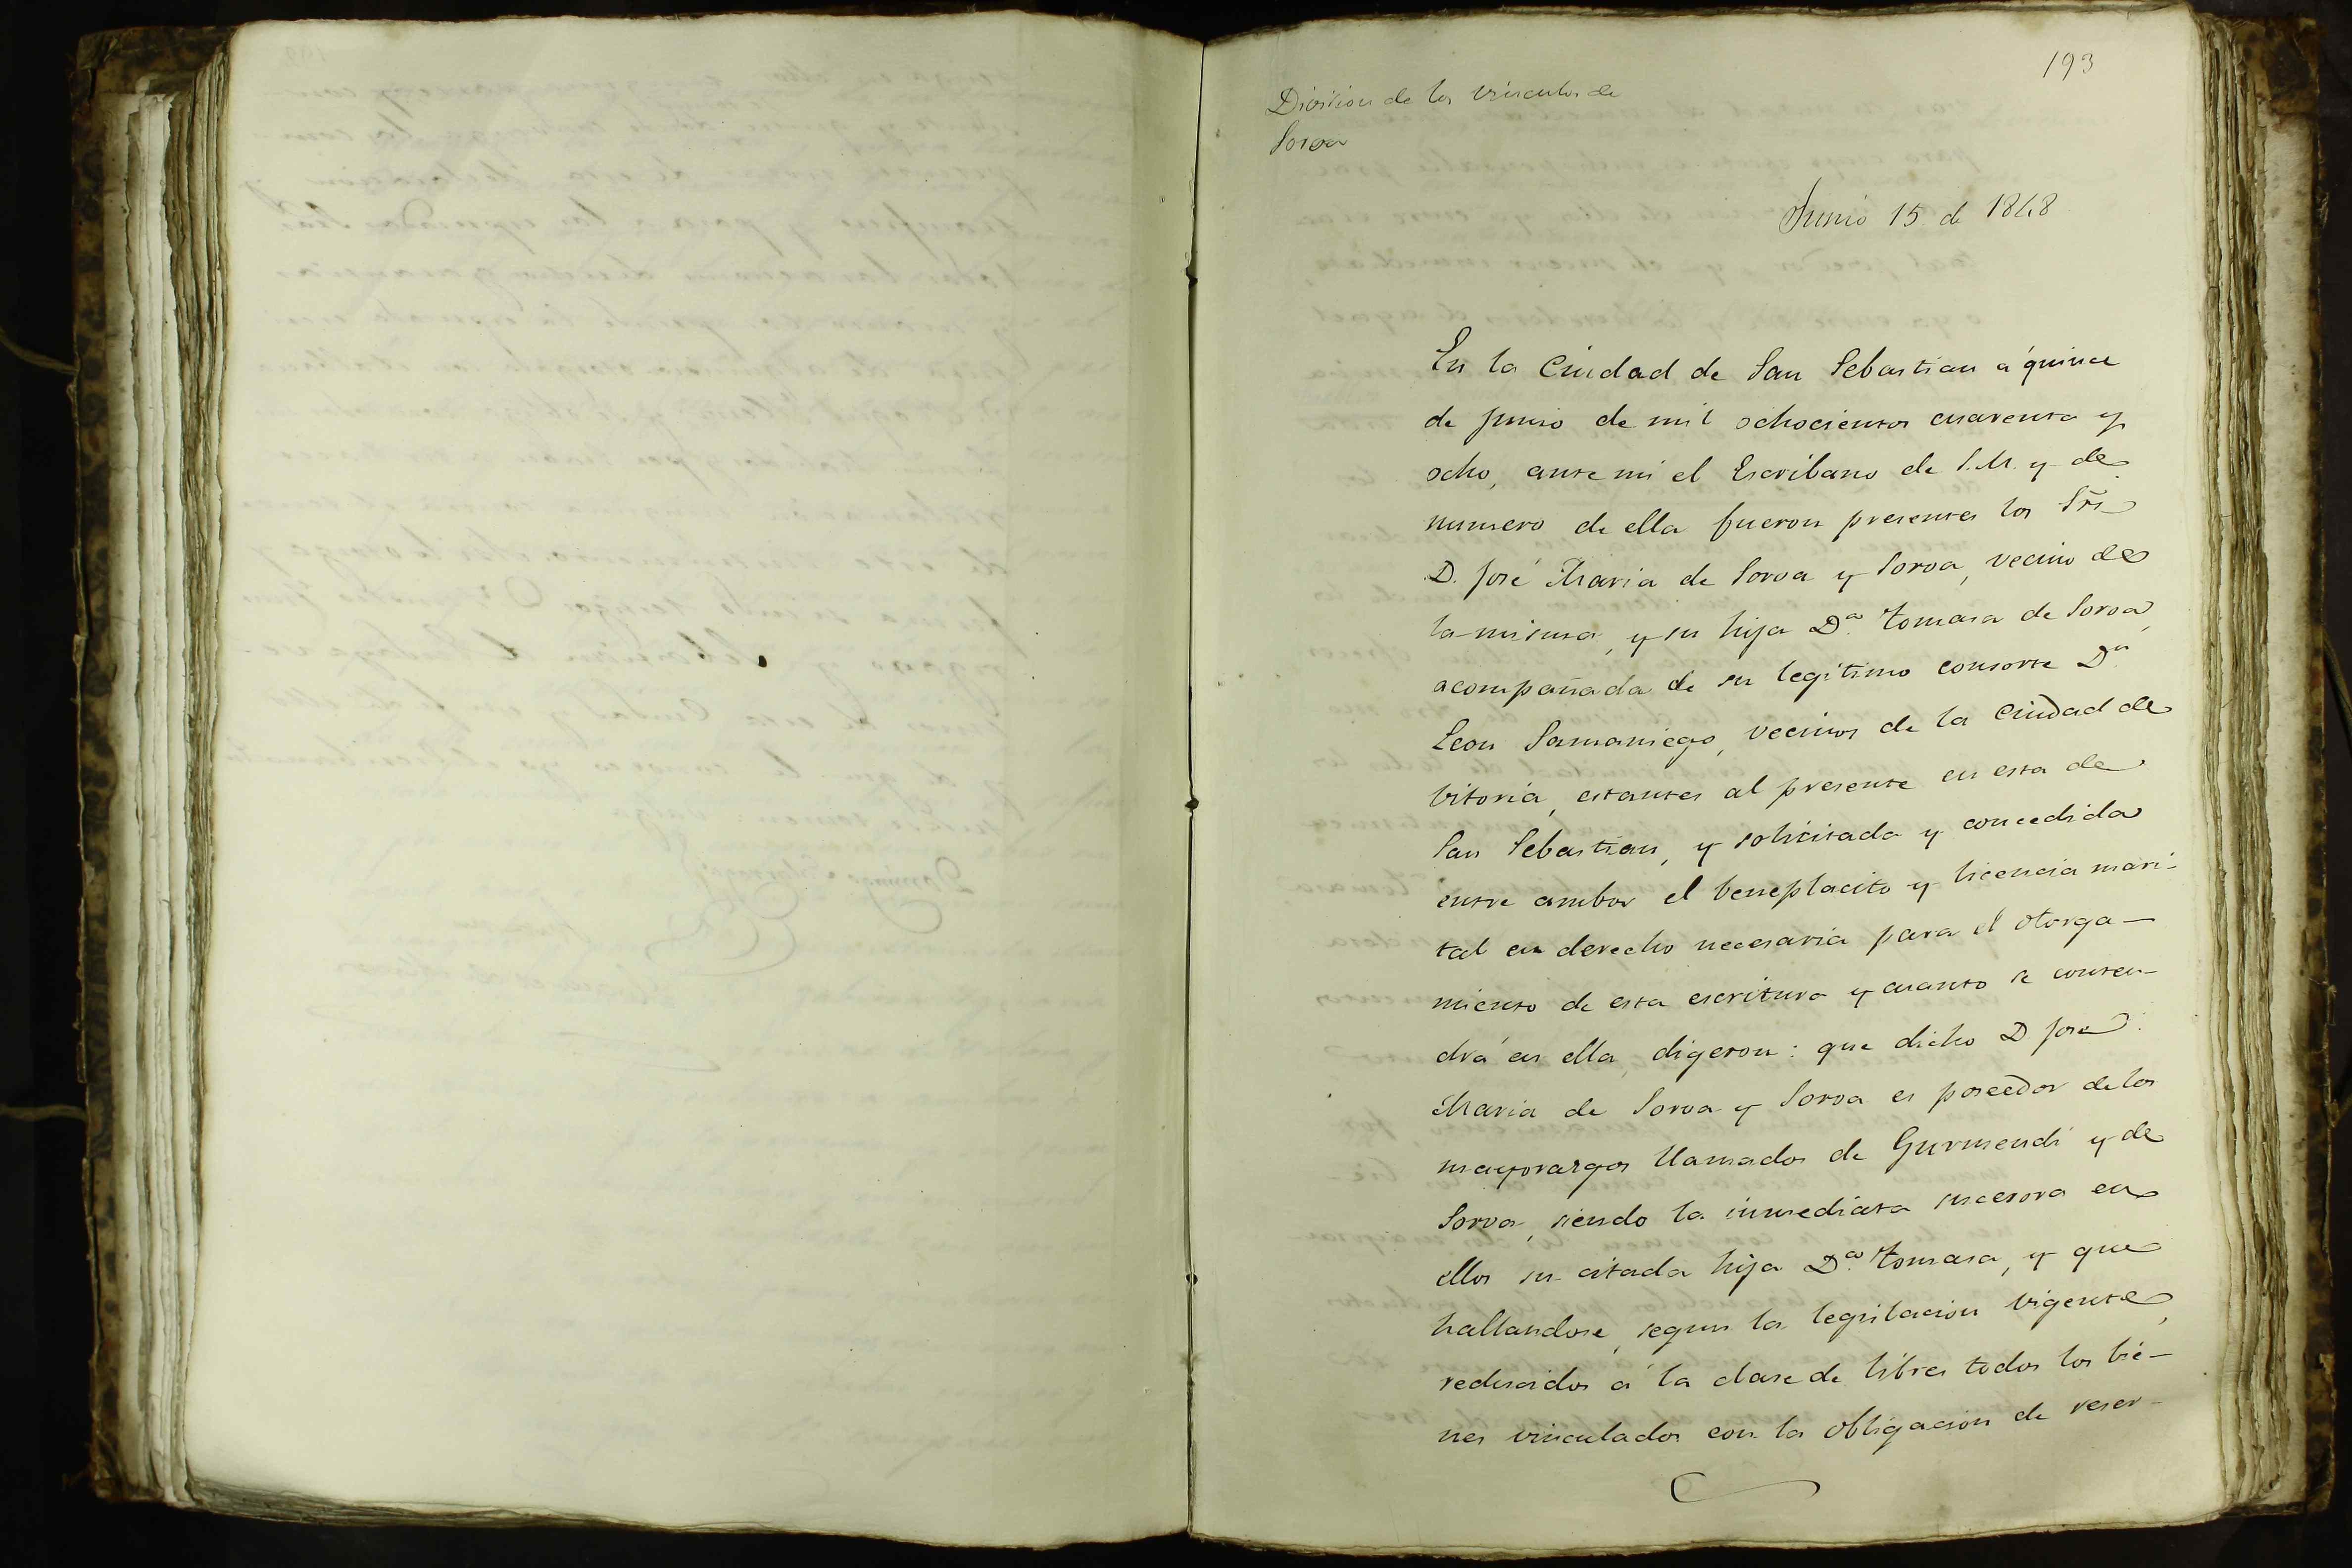 193
Division de los vinculos de
Soroa
Junio 15 de 1848
En la Ciudad de San Sebastian a quince
de Junio de mil ochocientos cuarenta y
ocho, ante mi el Escribano de S.M. y de
numero de ella fueron presentes los Srs
D. José Maria de Soroa y Soroa, vecino de
la misma, y su hija Dª. Tomasa de Soroa,
acompañada de su legitimo consorte Dn.
Leon Samaniego, vecinos de la Ciudad de
Vitoria, estantes al presente en esta de
San Sebastian, y solicitada y concedida
entre ambos el beneplacito y licencia mari-
tal en derecho necesaria para el otorga-
miento de esta escritura y cuanto se conten-
drá en ella, digeron: que dicho D José
Maria de Soroa y Soroa es poseedor de los
mayorazgos llamados de Gurmendi y de
Soroa, siendo la inmediata sucesora en
ellos su citada hija Dª. Tomasa, y que
hallandose, segun la legislacion vigente,
reducidos á la clase de libres todos los bie-
nes vinculados con la obligacion de reser-